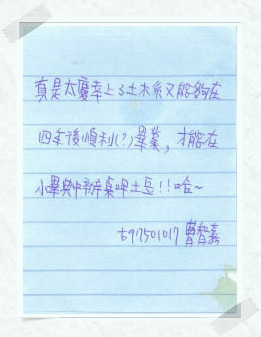 真是太慶幸上了土木系又能夠在
四年後順利(?)畢業，才能在
小畢典中辦桌呷土豆!!哈~
b97501017 曹智嘉